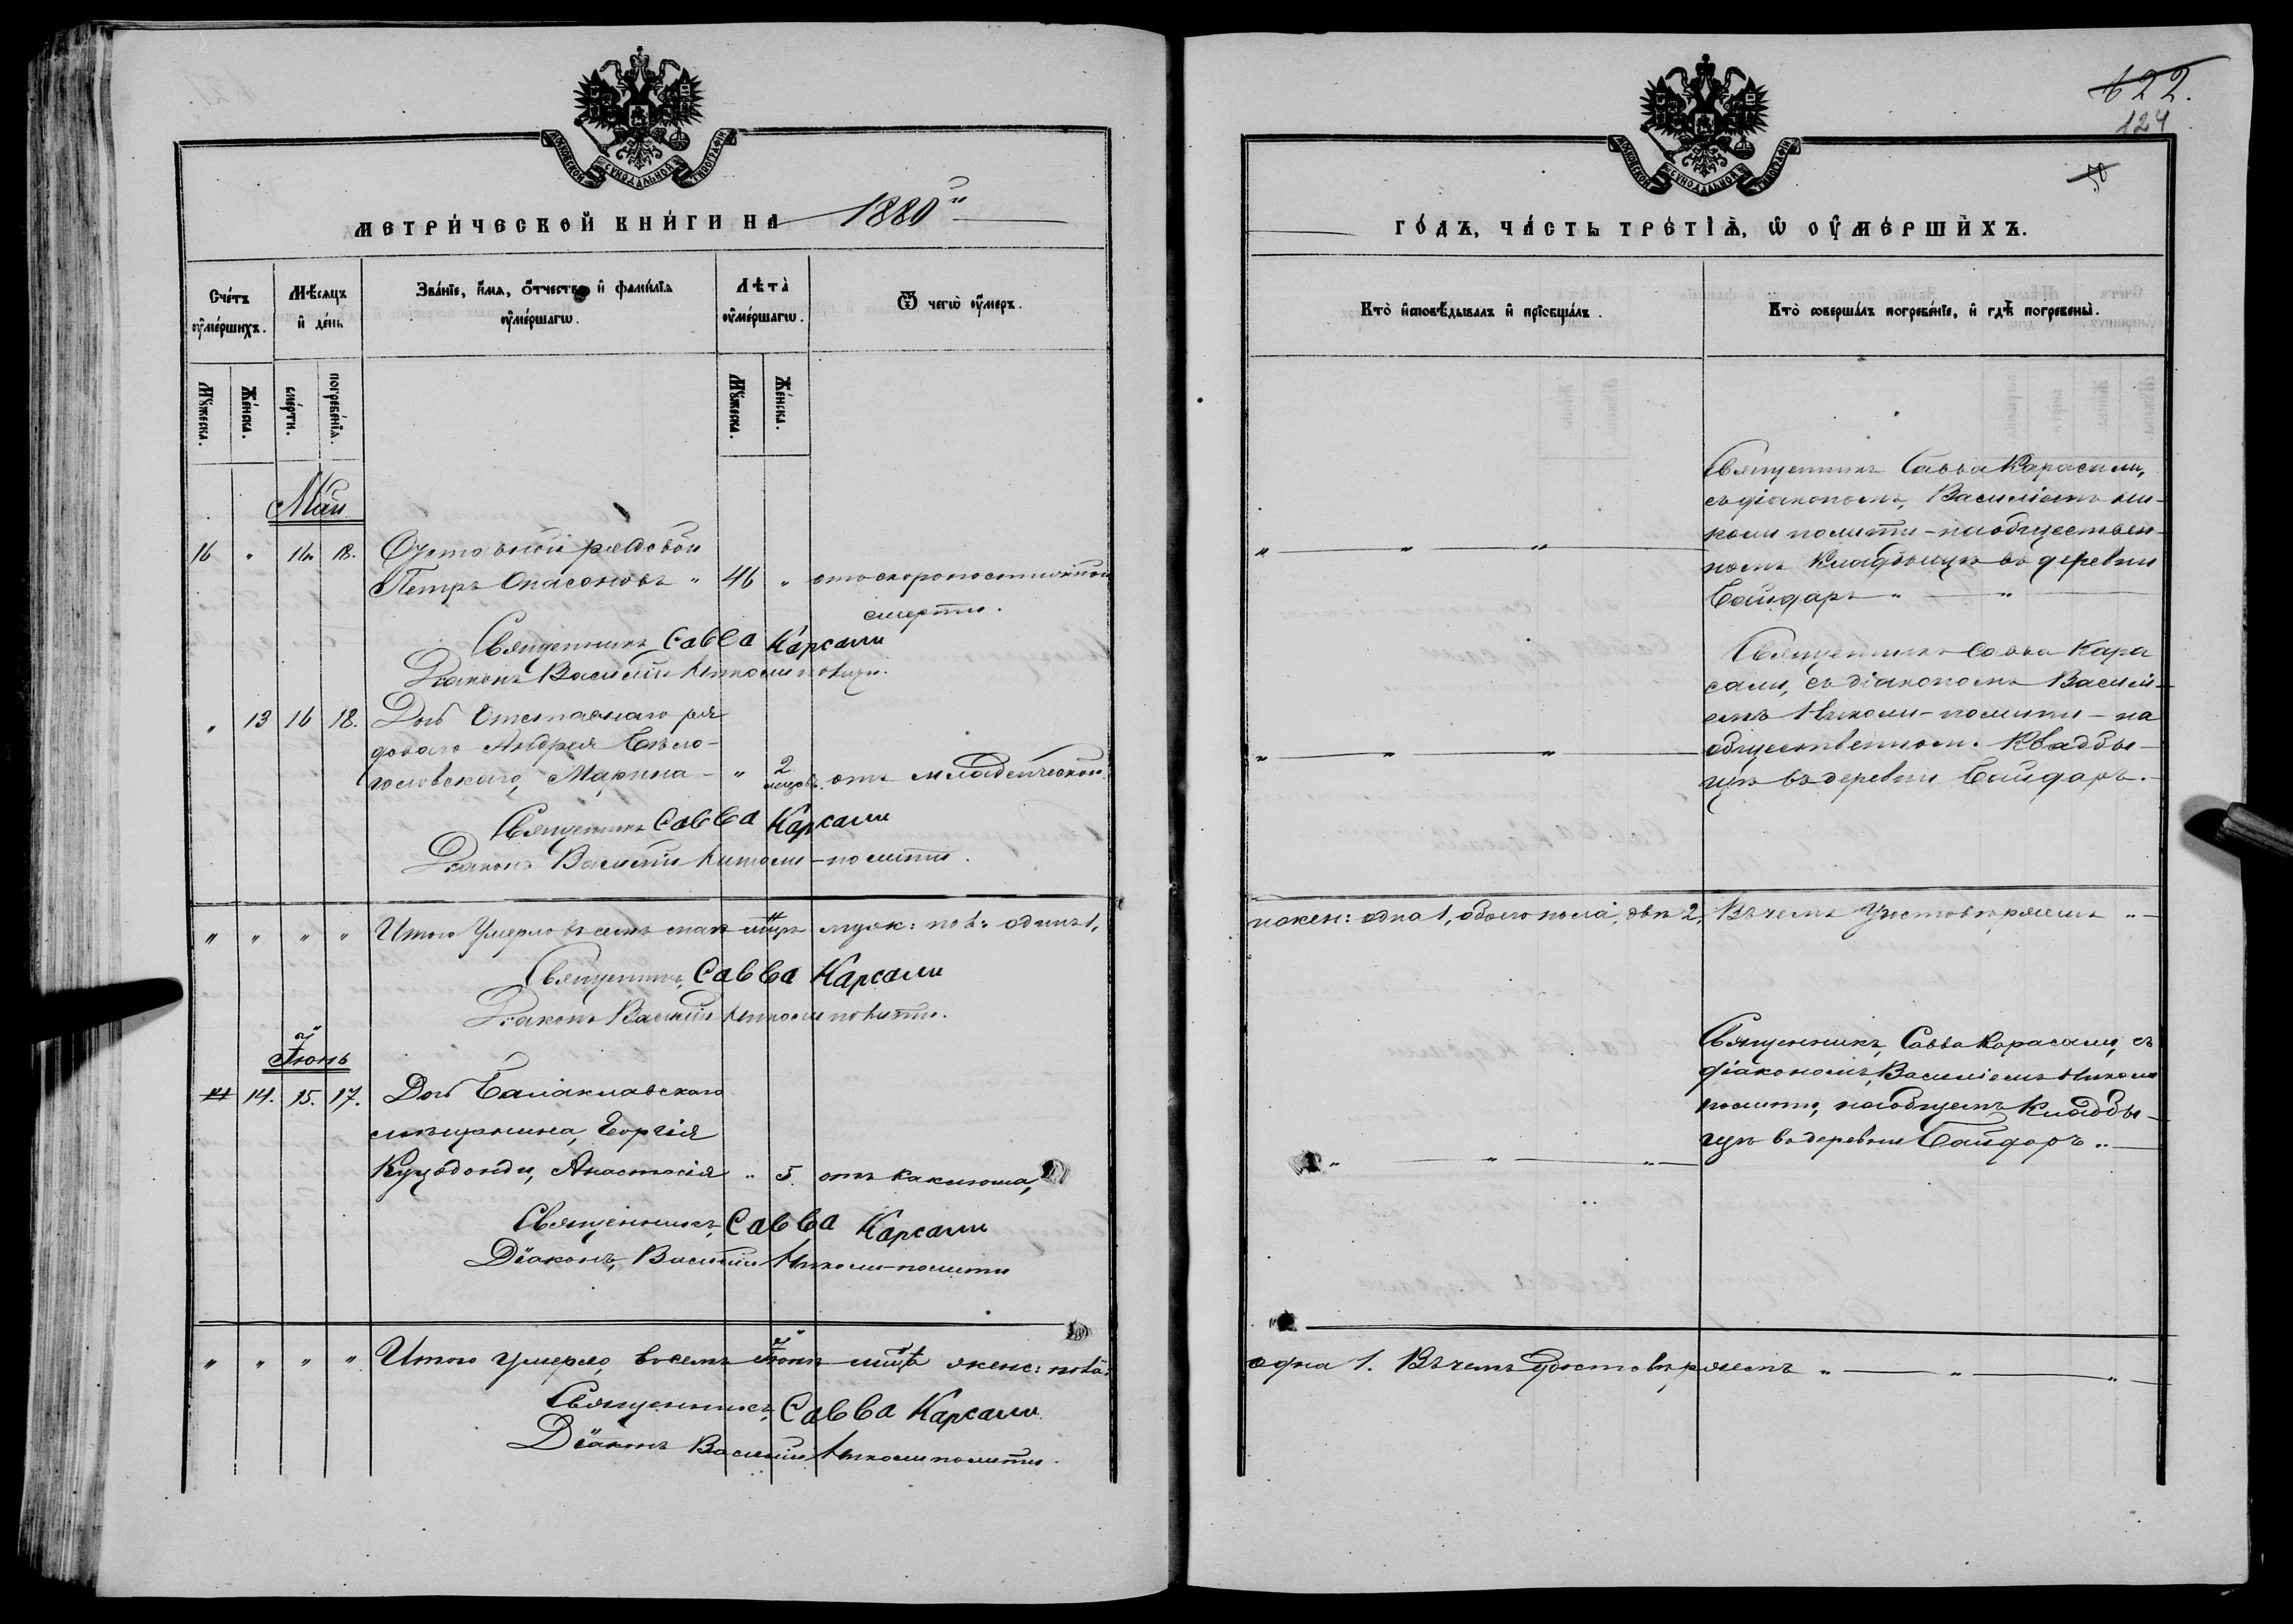 МОСКОВСКОЙ СѴНОДАЛЬНОЙ ТИПОГРАФІИ
МЕТРИ́ЧЕСКОЙ КНИ́ГИ НА 1880й
Сче́тъ ᲂу҆ме́ршихъ.
Мѣ́сяцъ и҆ де́нь
Зва́нїе, и҆́мѧ, ѻ҆́тчество и҆ фами́лїѧ ᲂу҆ме́ршагѡ.
Лѣта̀ ᲂу҆ме́ршагѡ.
Ѿ чегѡ̀ ᲂу҆́меръ.
Мꙋ́жеска.
Же́нска.
сме́рти.
погребе́нїѧ.
Мꙋ́жеска.
Же́нска.
Май
16 " 16. 18. Отставной рядовой
Петръ Опасоновъ " 46 " отъ скоропостижной
смерти.
Священникъ Савва Карсали
Діаконъ Василій Николи
" 13 16 18. Дочь Отставнаго ря
доваго Андрея Бѣло-
головскаго, Марина - " 2 мѣсяц. отъ младенческой
Священникъ Савва Карсали
Діаконъ Василій Николи-полити.
" " " " Итого Умерло въ семъ маѣ м-цѣ муж: пола одинъ 1,
Священникъ, Савва Карсали
Діаконъ Василій Николиполити.
Іюнь
14. 15. 17. Дочь Балаклавскаго
мѣщанина, Георгія
Анастасія " 5. отъ каклюша,
Священникъ, Савва Карсали
Діаконъ, Василій Николи-полити
" " " " Итого умерло, въ семъ Іюнѣ мцѣ женс: пола:
Священникъ, Савва Карсали
Діаконъ Василій Николиполити.
122.
124
50
МОСКОВСКОЙ СѴНОДАЛЬНОЙ ТИПОГРАФІИ
ГО́ДЪ, ЧА́СТЬ ТРЕ́ТІѦ, Ѡ ОУ҆МЕ́РШИХЪ.
Кто̀ и҆сповѣ́дывалъ и҆ прїобща́лъ.
Кто̀ соверша́лъ погребе́нїе, и҆ гдѣ̀ погребены̀.
Священникъ Савва Карасали,
съ діакономъ, Василіемъ Ни-
коли полити - на обществен-
номъ Кладбищѣ въ деревни
" " " Байдаръ " "
Священникъ Савва Кара
сали, съ діакономъ Васили-
емъ Николи-полити - на
общественном. Кладби-
" " " щѣ въ деревни Байдаръ.
и жен: одна 1, обоего пола, двѣ 2, Въ чемъ Удостовѣряемъ "
Священникъ, Савва Карасали, съ
діакономъ, Василіемъ Николи
полити, на общемъ Кладби-
щѣ въ деревни Байдаръ "
" " "
одна 1. Въ чемъ Удостовѣряемъ " " "